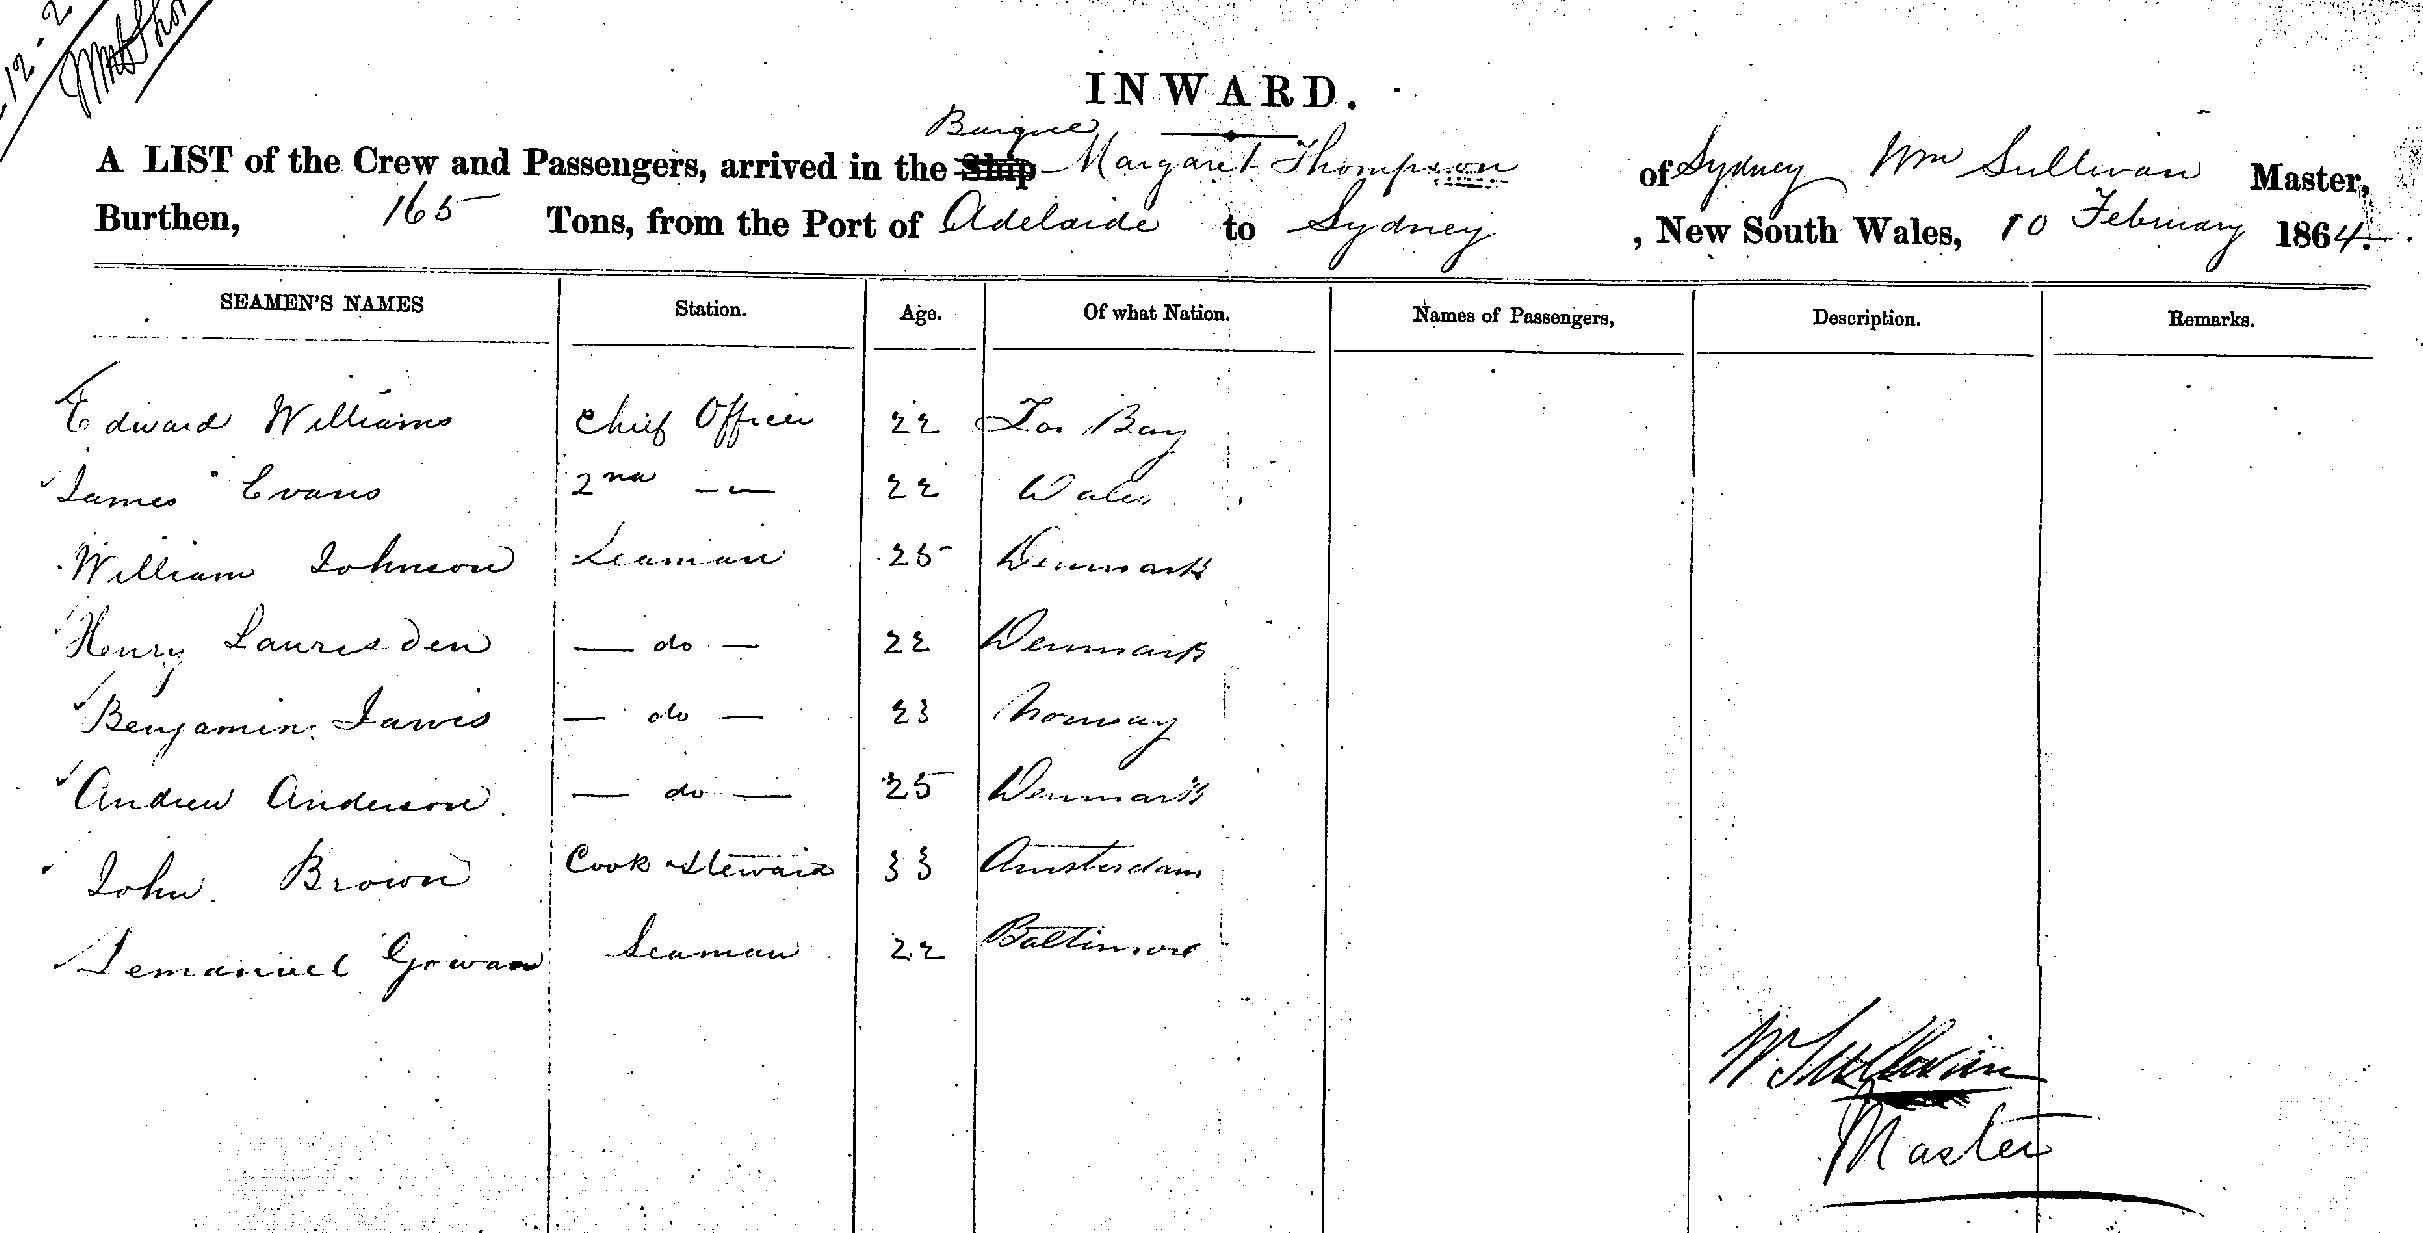 12-2
INWARD.
Barque
A LIST of the Crew and Passengers, arrived in the Ship Margaret Thompson of Sydney Wm Sullivan Master,
Burthen, 165 Tons, from the Port of Adelaide to Sydney , New South Wales, 10 February 1864.
SEAMEN'S NAMES Station. Age. Of what Nation. Names of Passengers, Description. Remarks.
Edward Williams Chief Officer 22 Tor Bay
James Evans 2nd — — 22 Wales
William Johnson Seaman 25 Denmark
Henry Laurisden — do — 22 Denmark
Benjamin Jarvis — do — 23 Norway
Andrew Anderson — do — 25 Denmark
John Brown Cook & Steward 33 Amsterdam
Gowan Seaman 22 Baltimore
W Sullivan
Master